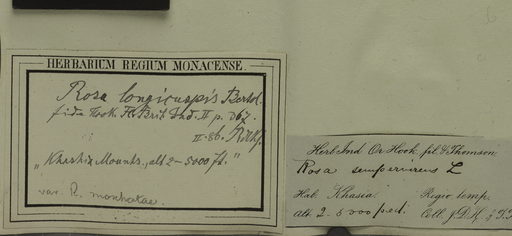 HERBARIUM REGIUM MONACENSE.
Rosa longicuspis Bertol.
fide Hook. Fl. Brit. Ind. II p. 367.
II. 86.
"Khasia Mounts., alt 2-5000 ft."
var. R. moschatae.
Herb. Ind. Or. Hook. fil. & Thomson
Rosa sempervirens L
Hab. Khasia. Regio temp.
Alt. 2-5000 ped. Coll. J.D.H. & T.T.